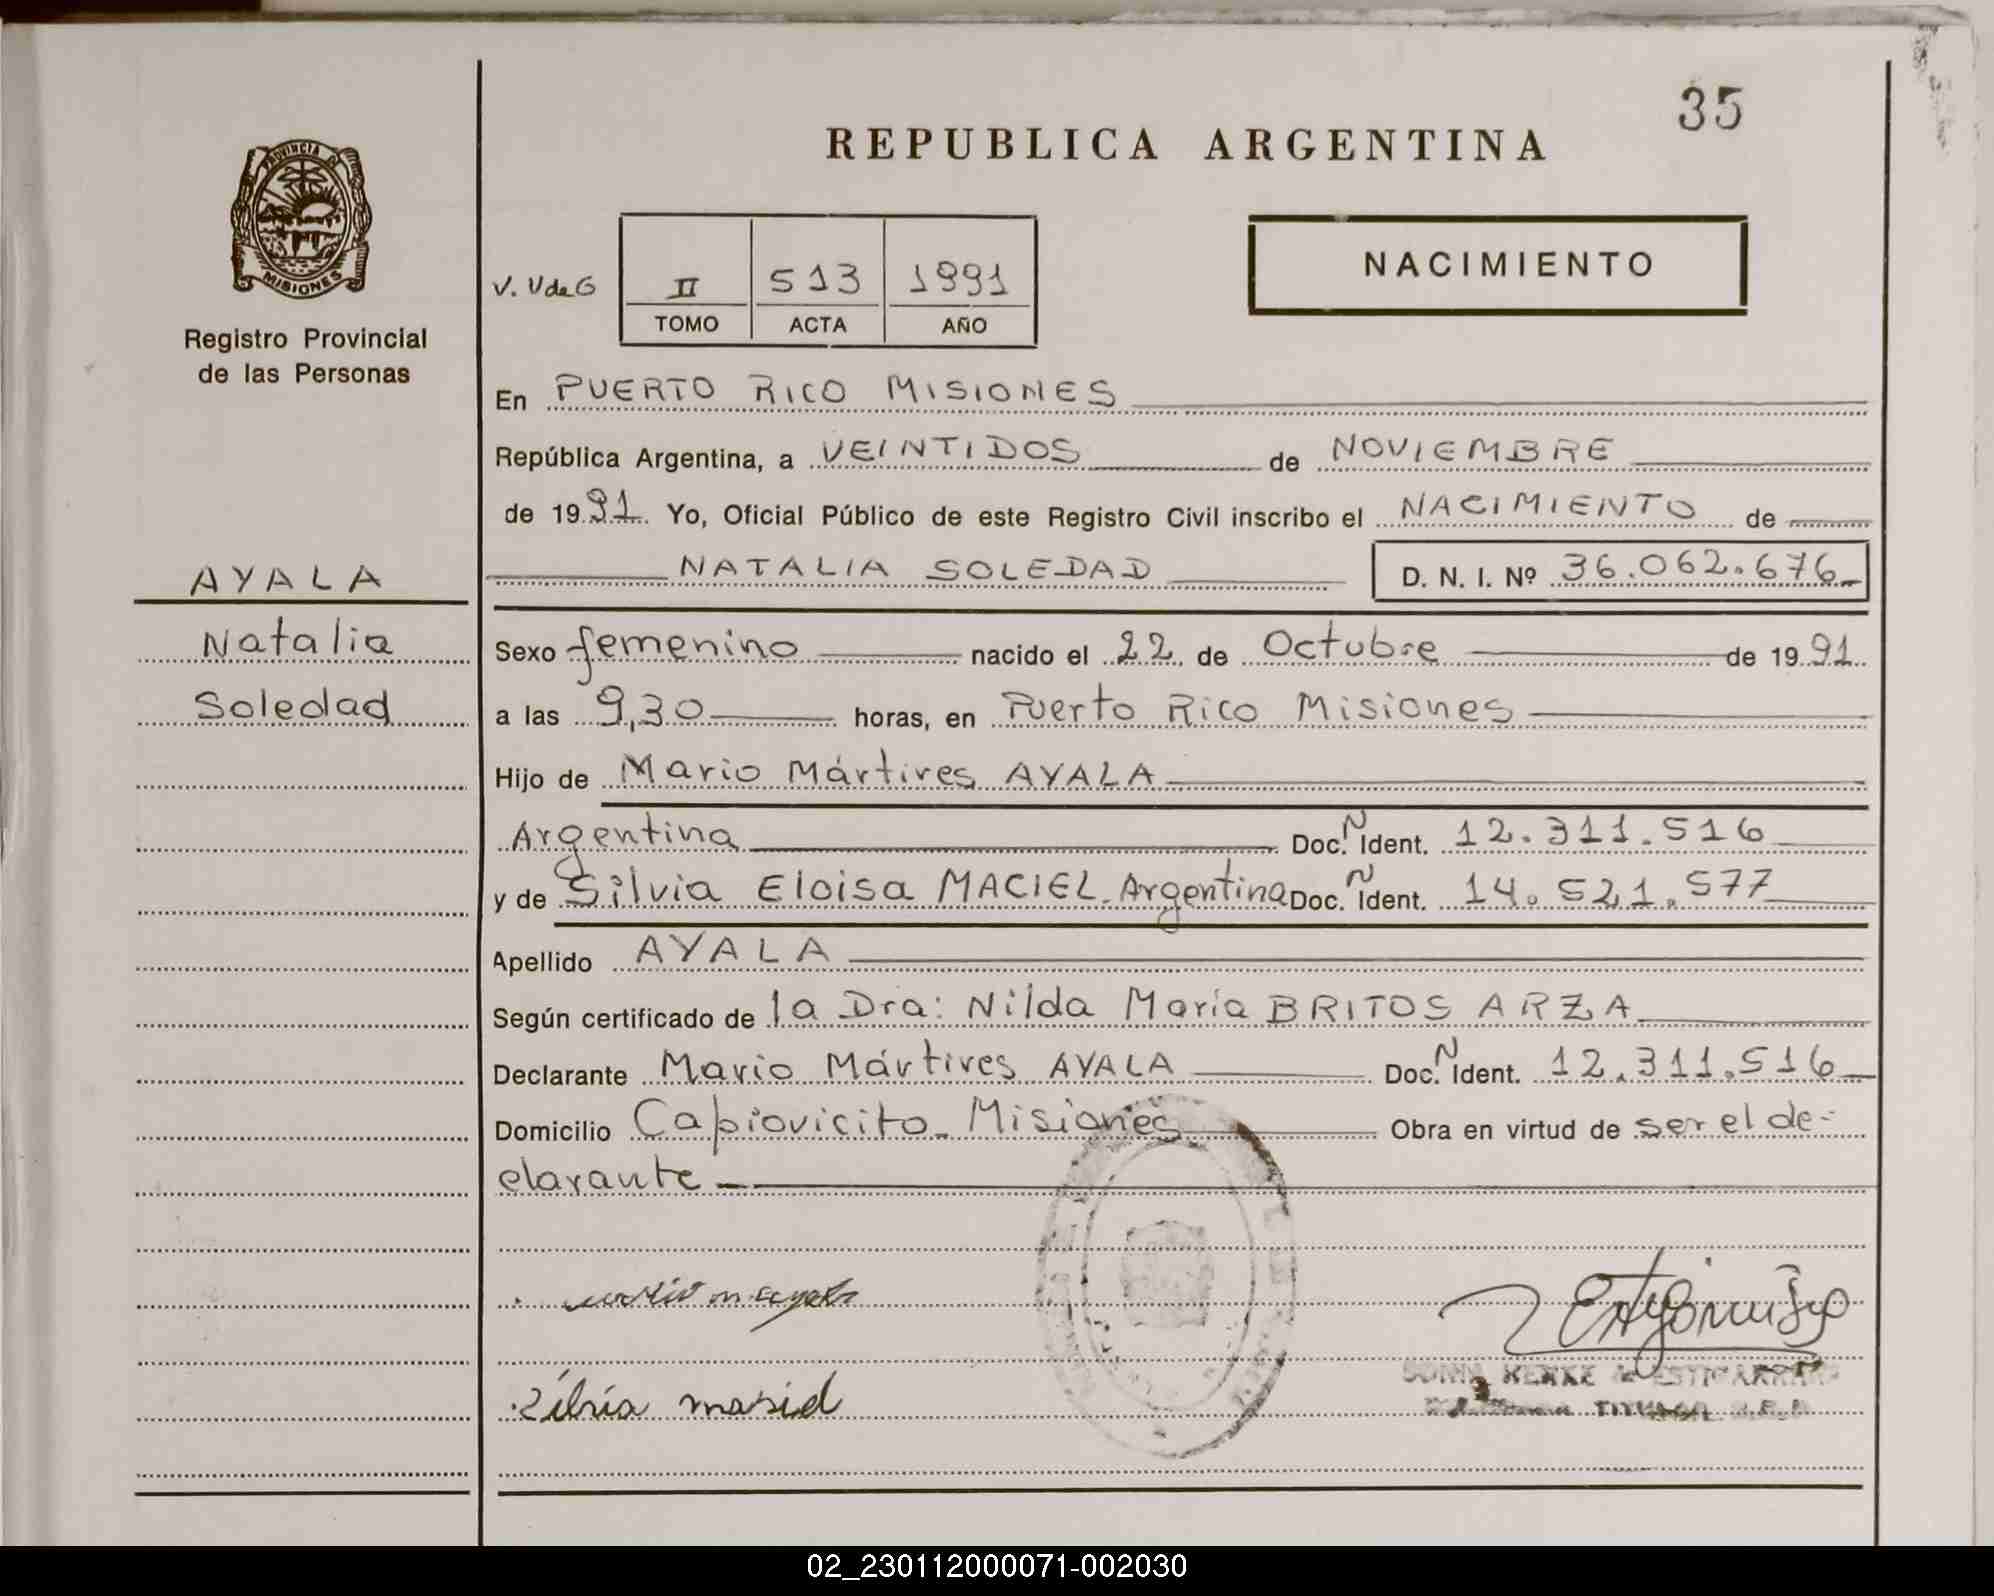 35
REPUBLICA ARGENTINA
PROVINCIA DE
MISIONES
Registro Provincial
de las Personas
NACIMIENTO
V. V de G
II 513 1991
TOMO ACTA AÑO
En PUERTO RICO MISIONES
República Argentina, a VEINTIDOS de NOVIEMBRE
de 1991. Yo, Oficial Público de este Registro Civil inscribo el NACIMIENTO de
NATALIA SOLEDAD D. N. I. Nº 36.062.676
AYALA
Natalia
Soledad
Sexo femenino nacido el 22 de Octubre de 1991
a las 9,30 horas, en Puerto Rico Misiones
Hijo de Mario Mártires AYALA
Argentina Doc. N Ident. 12.311.516
y de Silvia Eloisa MACIEL. Argentina Doc. N Ident. 14.521.577
Apellido AYALA
Según certificado de la Dra: Nilda María BRITOS ARZA
Declarante Mario Mártires AYALA Doc. N Ident. 12.311.516
Domicilio Capiovicito - Misiones Obra en virtud de ser el de-
clarante
TITULAR
02_230112000071-002030